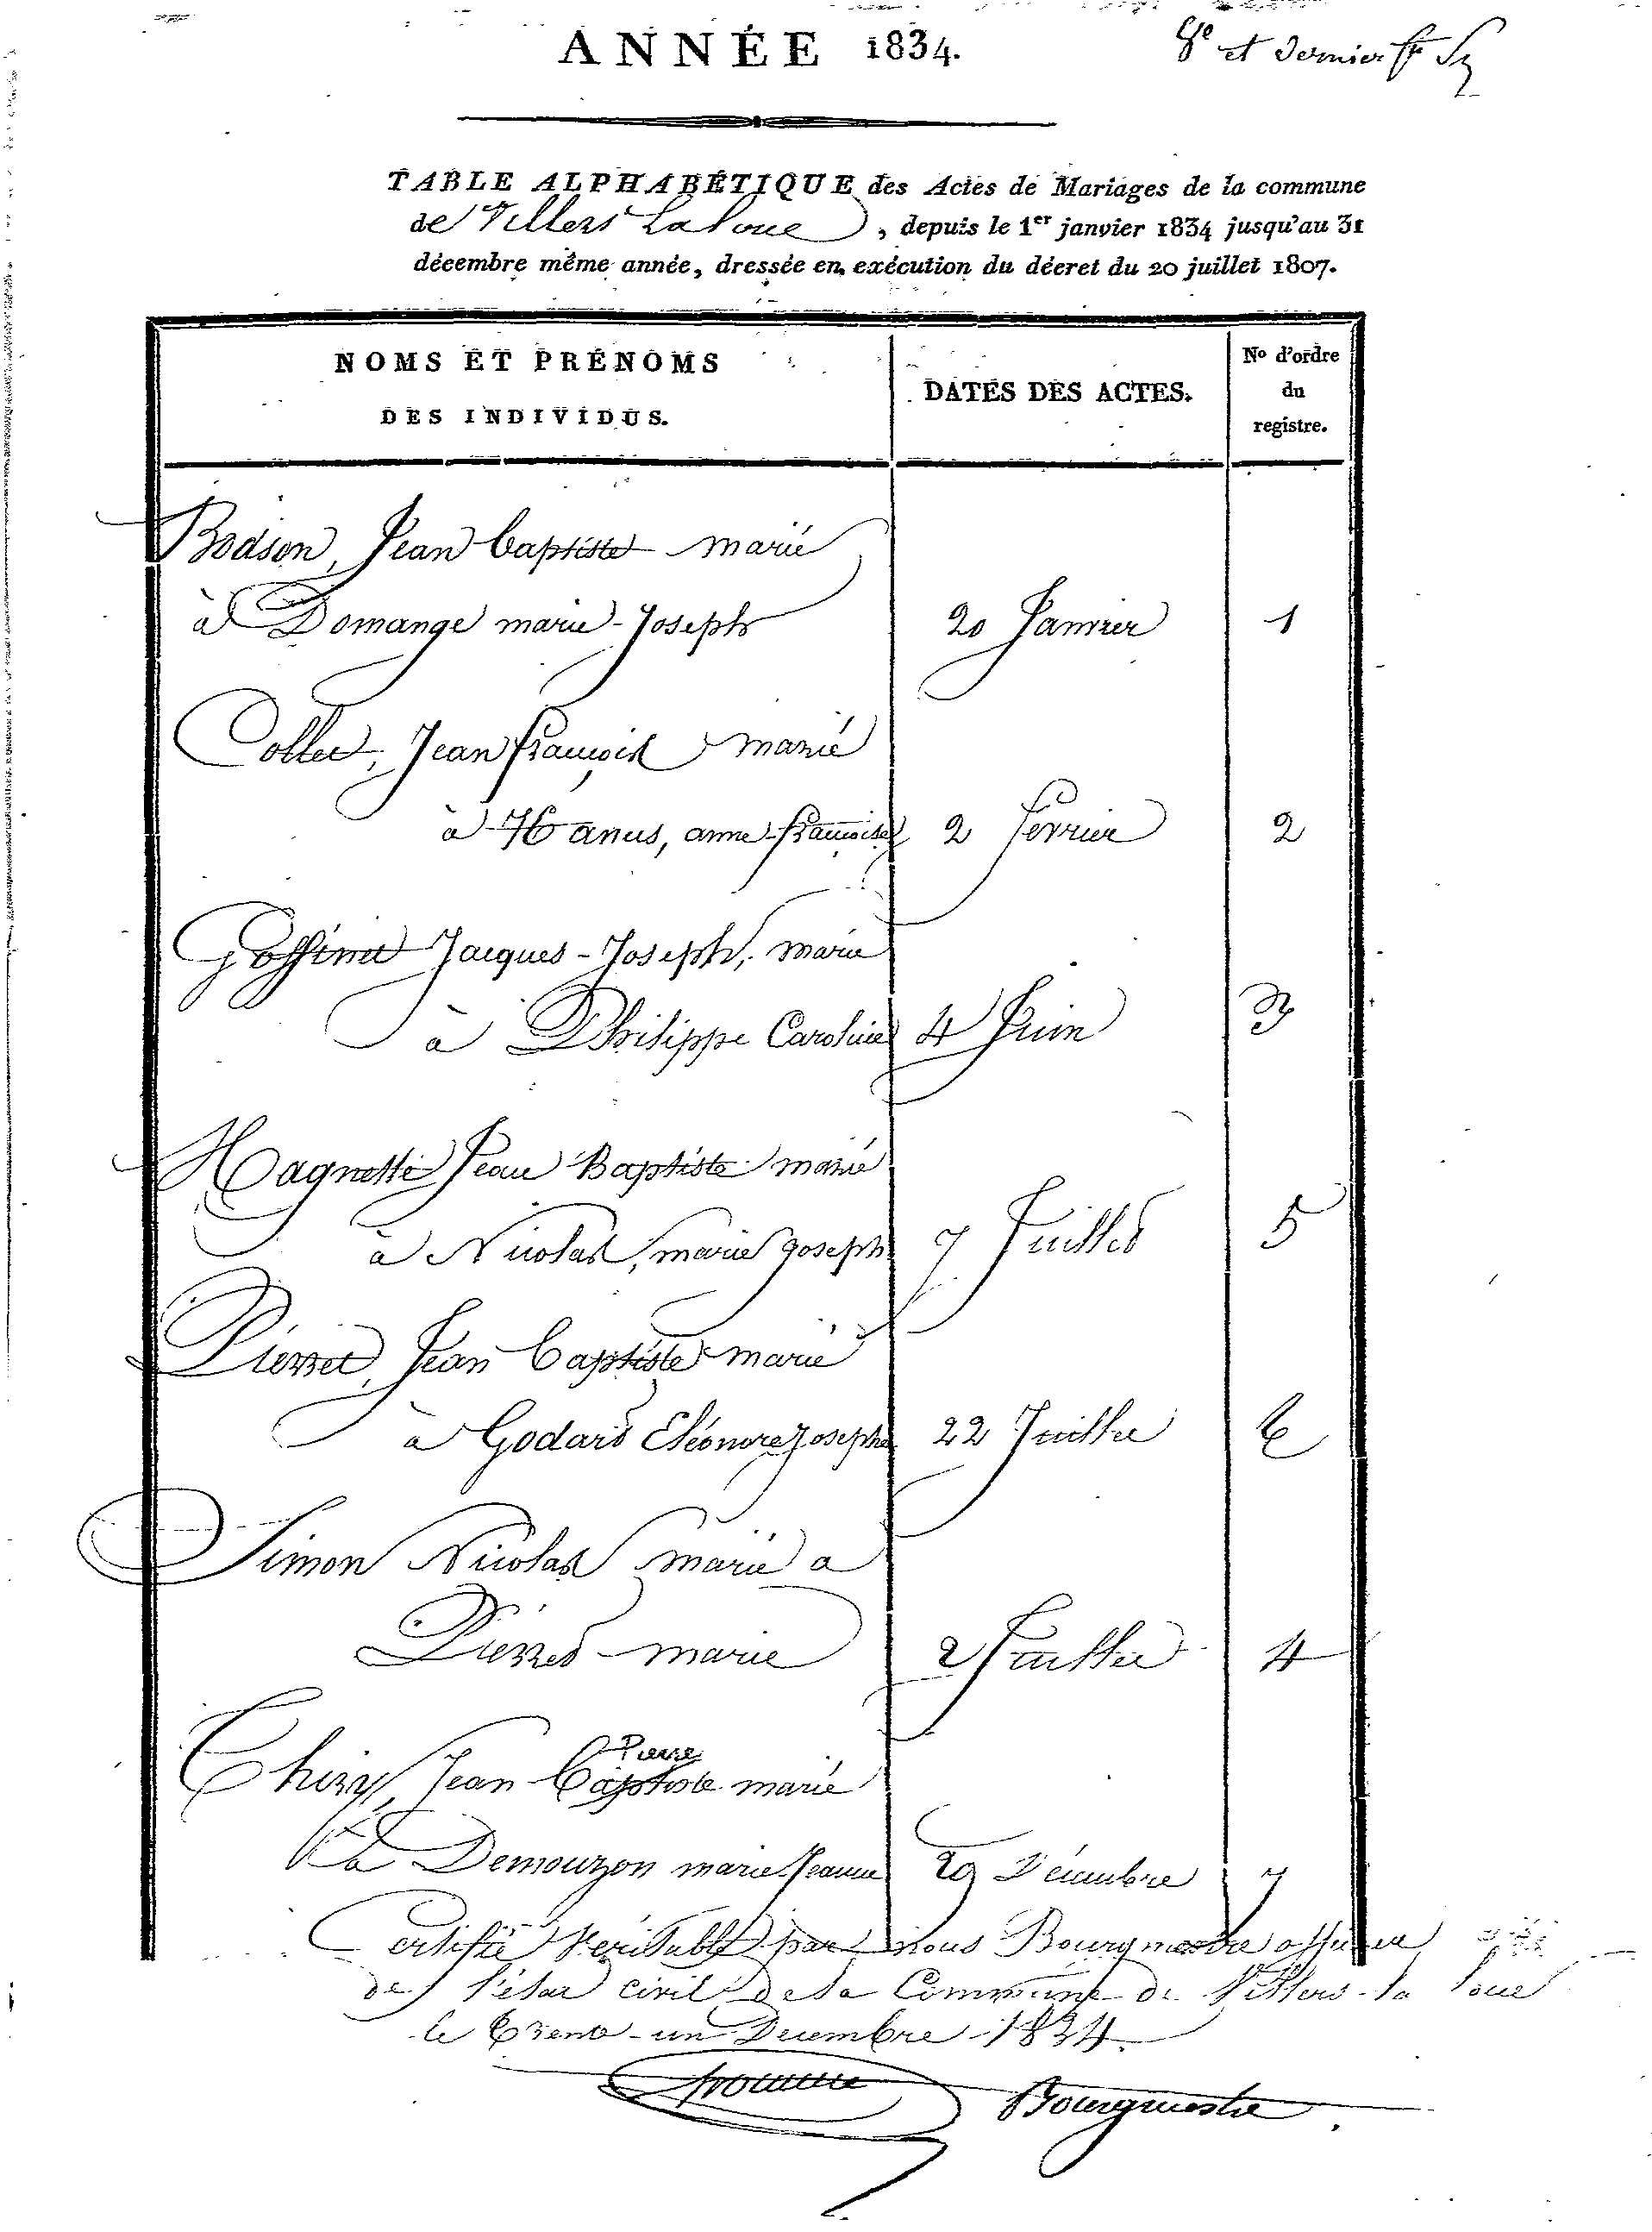 ANNÉE 1834.
8e et dernier
TABLE ALPHABÉTIQUE des Actes de Mariages de la commune
de Villers La Loue, depuis le 1er janvier 1834 jusqu'au 31
décembre même année, dressée en exécution du décret du 20 juillet 1807.
NOMS ET PRÉNOMS
DES INDIVIDUS.
DATES DES ACTES.
No d'ordre
du
registre.
Bodson, Jean baptiste marié
à Domange marie-Joseph 20 Janvier 1
Collet, Jean françois marié
à hanus, anne françoise 2 fevrier 2
Gossinet Jacques-Joseph, marié
à Philippe Caroline 4 Juin 3
Magnette Jean Baptiste marié
à Nicolas, marie joseph 7 Juillet 5
Pierret, Jean baptiste marié
à Godard Eléonore Josephe 22 Juillet 6
Simon Nicolas marié a
Pierret marie 2 Juillet 4
Thiry, Jean Baptiste Pierre marié
à Demouzon marie Jeanne 29 Décembre 7
Certifié Véritable par nous Bourgmestre officier
de l'état civil de la Commune de Villers-la Loue
le trente-un Decembre 1834.
Bourgmestre